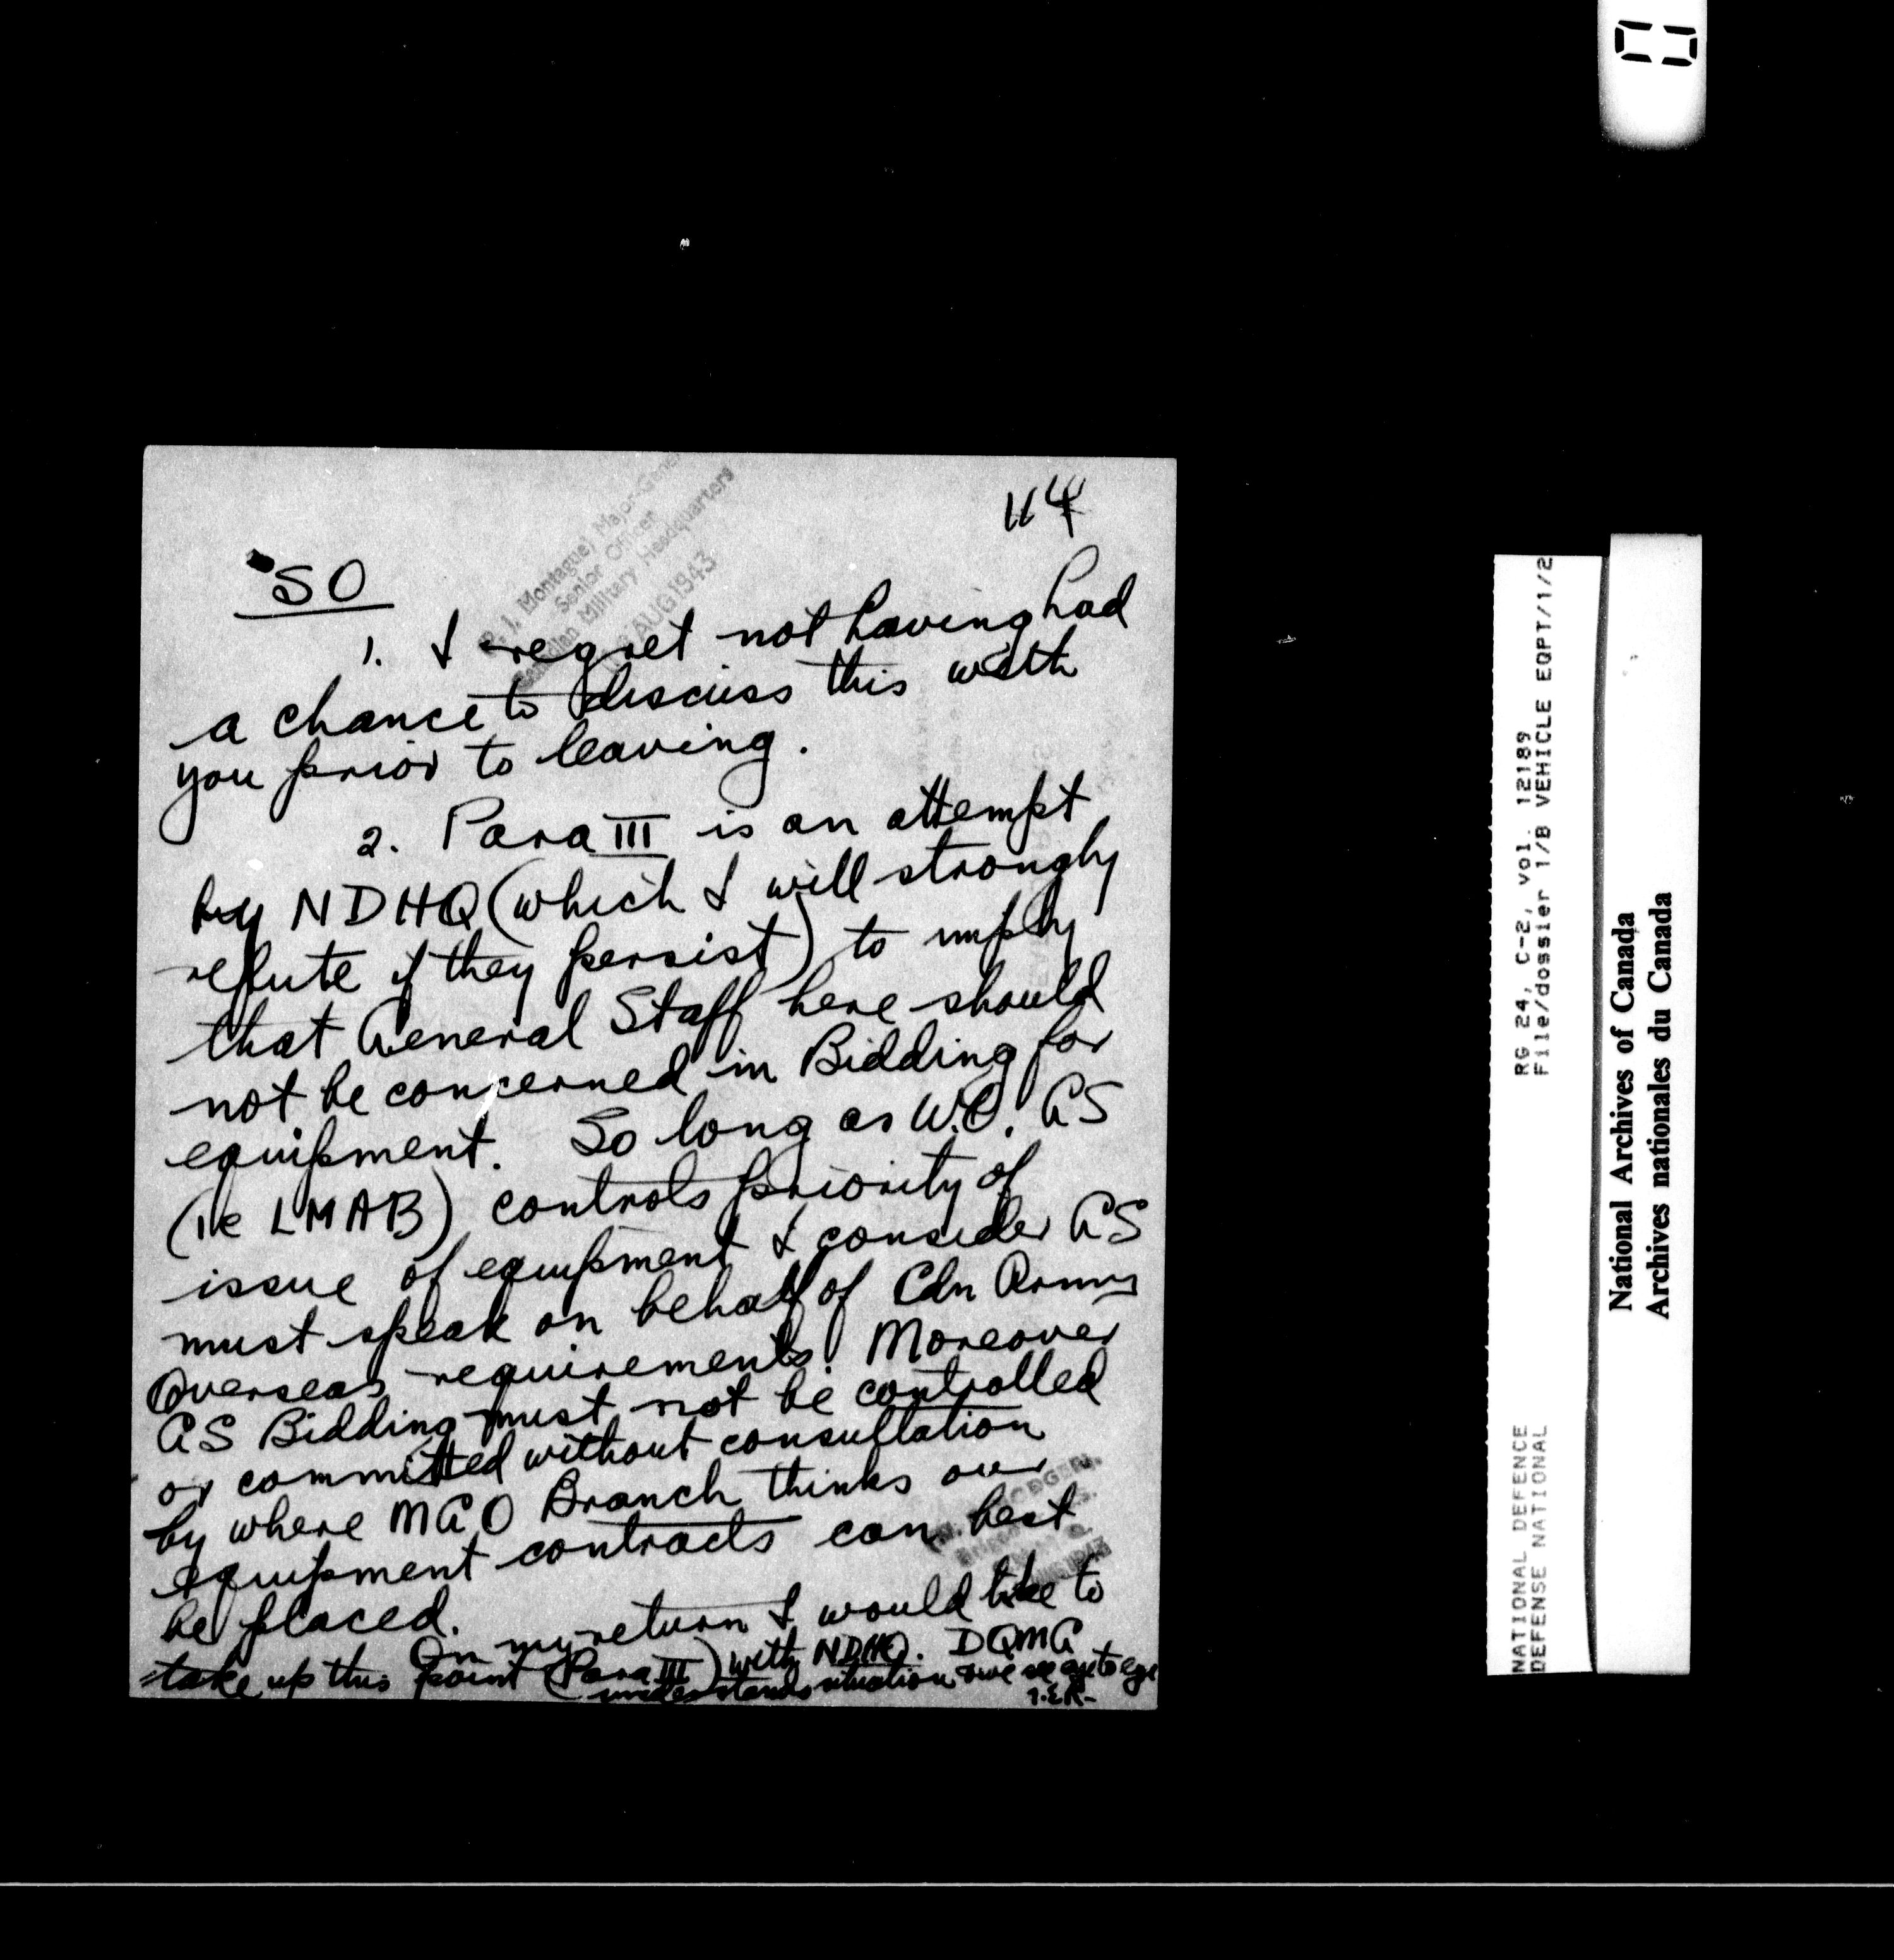 114
P. J. Montague) Major-Gener
Senior Officer
Canadian Military Headquarters
AUG 1943
SO
1. I regret not having had
a chance to discuss this with
you prior to leaving.
2. Para III is an attempt
by NDHQ (which I will strongly
refute if they persist) to imply
that General Staff here should
not be concerned in Bidding for
equipment. So long as W.O. GS
(ie LMAB) controls priority of
issue of equipment I consider GS
must speak on behalf of Cdn Army
Overseas requirements. Moreover
GS Bidding must not be controlled
or committed without consultation
by where MGO Branch thinks our
equipment contracts can best
be placed.
On my return I would like to
take up this point (Para III) with NDHQ. DQMG
understands situation & we see eye to eye
RG 24, C-2, vol. 12189
File/dossier 1/B VEHICLE EQPT/1/2
NATIONAL DEFENCE
DEFENSE NATIONAL
National Archives of Canada
Archives nationales du Canada